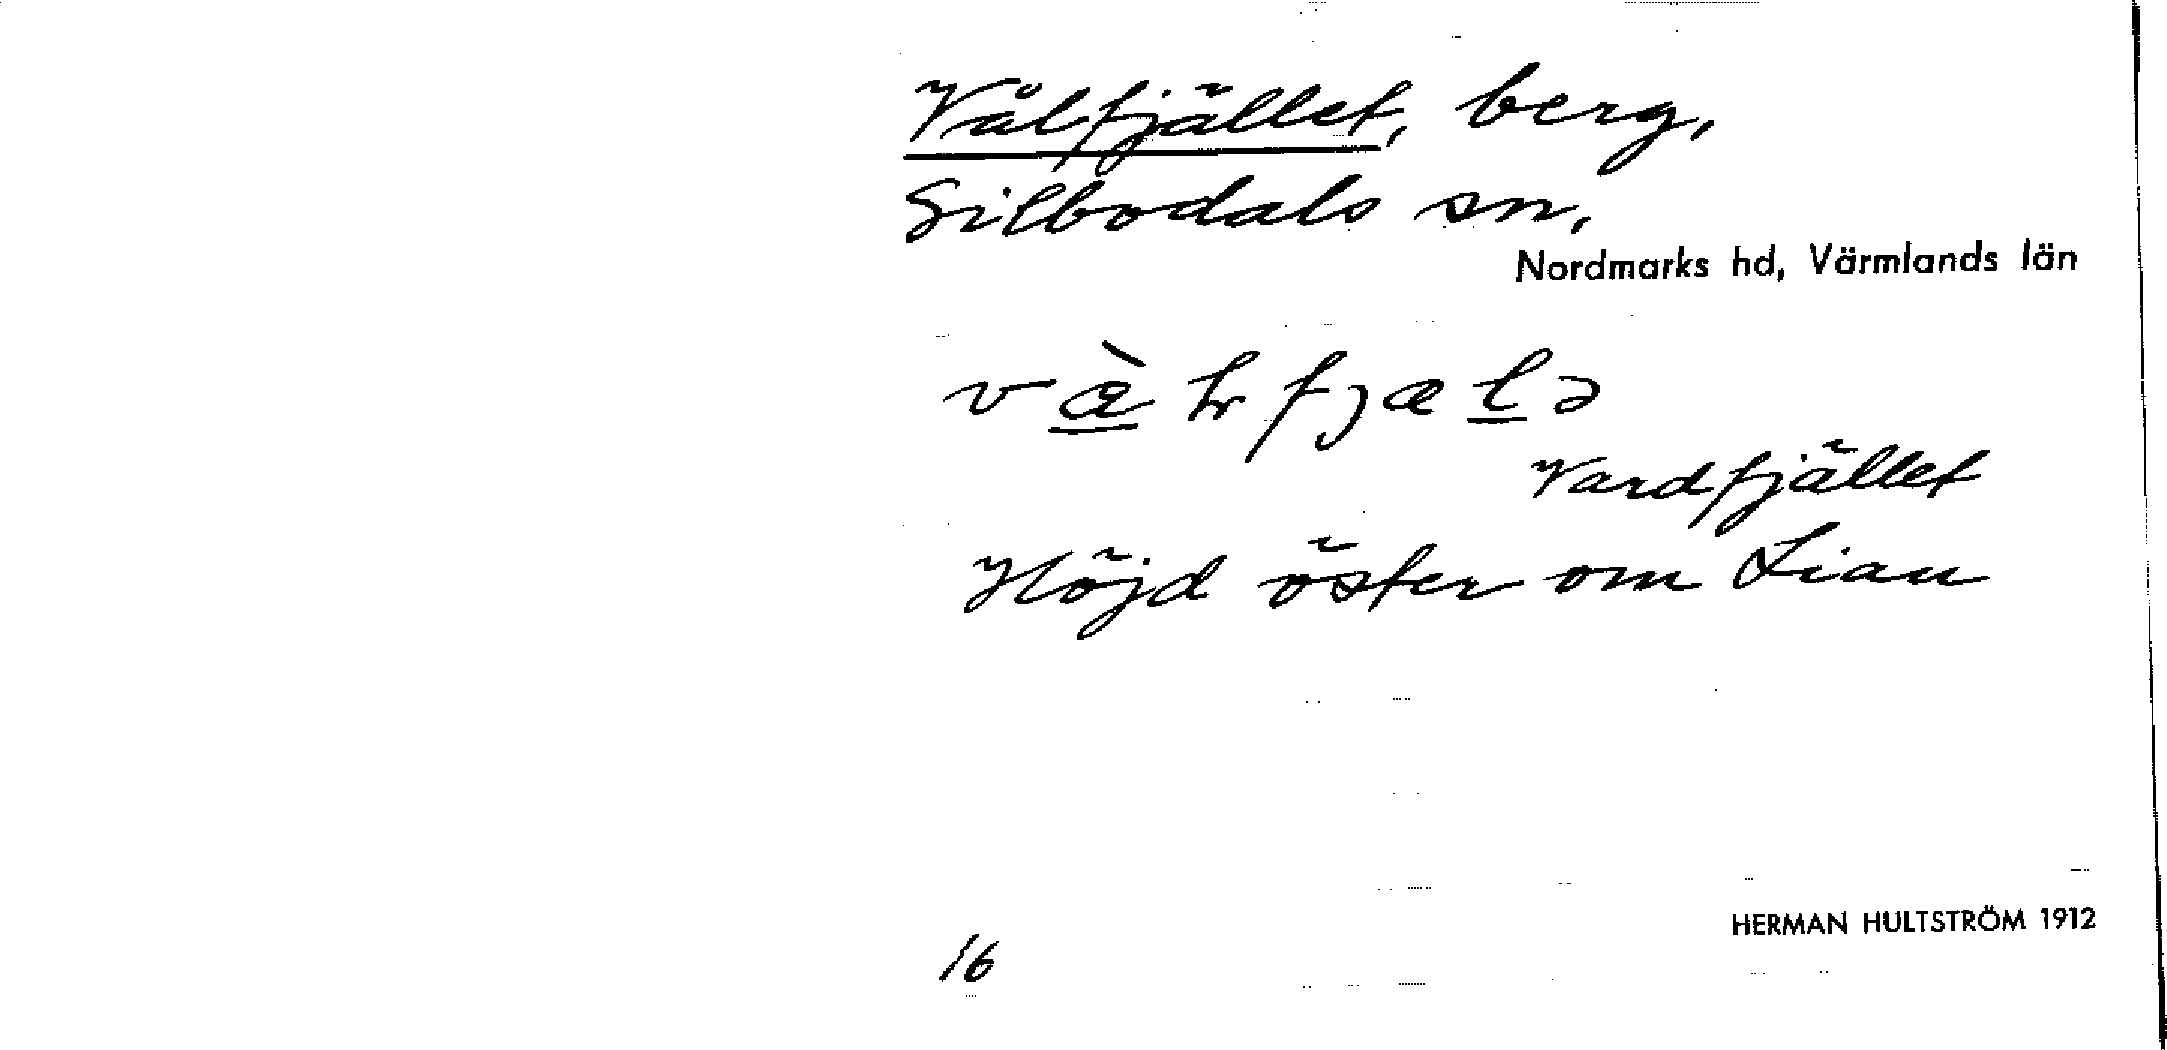 Vålfjället, berg,
Silbodals sn,
Nordmarks hd, Värmlands län
Vardfjället
Höjd öster om Lian
HERMAN HULTSTRÖM 1912
16